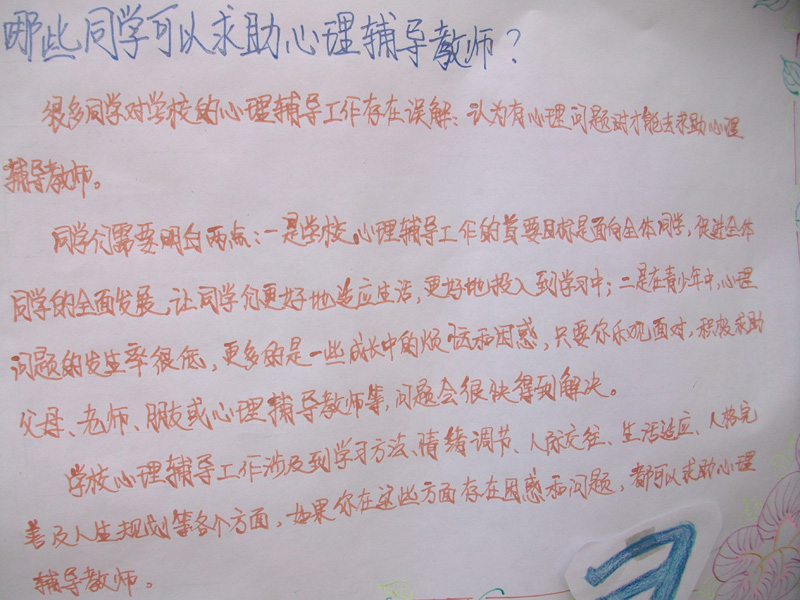 哪些同学可以求助心理辅导教师？
很多同学对学校的心理辅导工作存在误解：认为有心理问题时才能去求助心理
辅导教师。
同学们需要明白两点：一是学校心理辅导工作的首要目标是面向全体同学，促进全体
同学的全面发展，让同学们更好地适应生活，更好地投入到学习中；二是在青少年中，心理
问题的发生率很低，更多的是一些成长中的烦恼和困惑，只要你乐观面对，积极求助
父母、老师、朋友或心理辅导教师等，问题会很快得到解决。
学校心理辅导工作涉及到学习方法、情绪调节、人际交往、生活适应、人格完
善及人生规划等各个方面，如果你在这些方面存在困惑和问题，都可以求助心理
辅导教师。